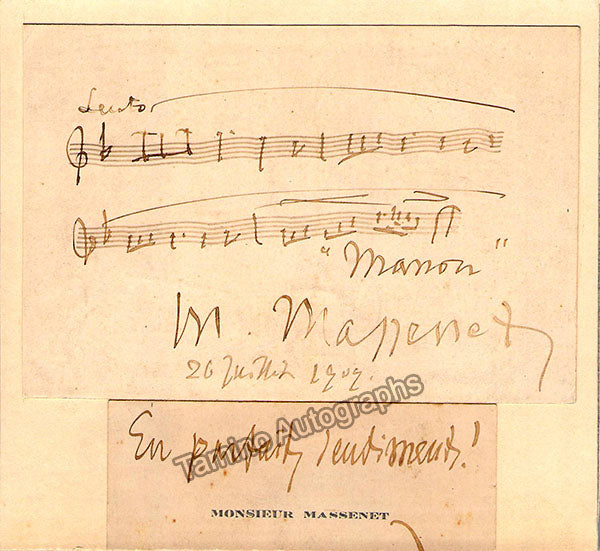 Lento
"Manon"
M. Massenet
26 juillet 1909.
En parfaits sentiments!
Tamino Autographs
MONSIEUR MASSENET